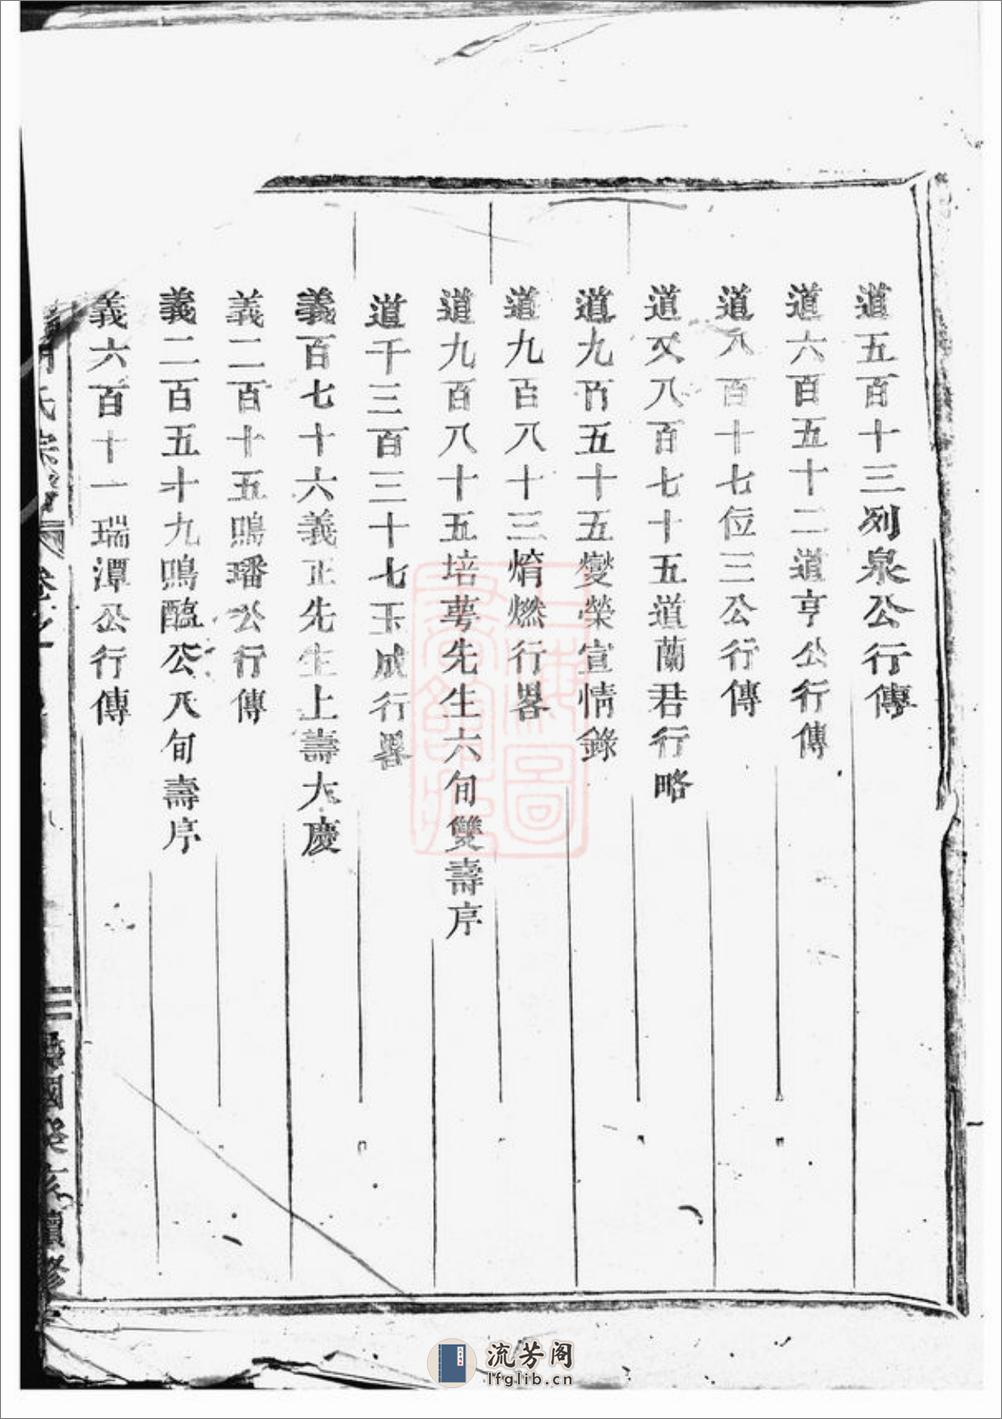 道五百十三列泉公行傳
道六百五十二道亨公行傳
道八百十七位三公行傳
道又八百七十五道蘭君行略
道九百五十五燮榮宣情錄
道九百八十三焴燃行畧
道九百八十五培萼先生六旬雙壽序
道千三百三十七玉成行畧
義百七十六義正先生上壽大慶
義二百十五鳴璠公行傳
義二百五十九鳴醢公八旬壽序
義六百十一瑞潭公行傳
氏宗譜 卷之一 二 民國癸亥續修
流芳阁
lfglib.cn